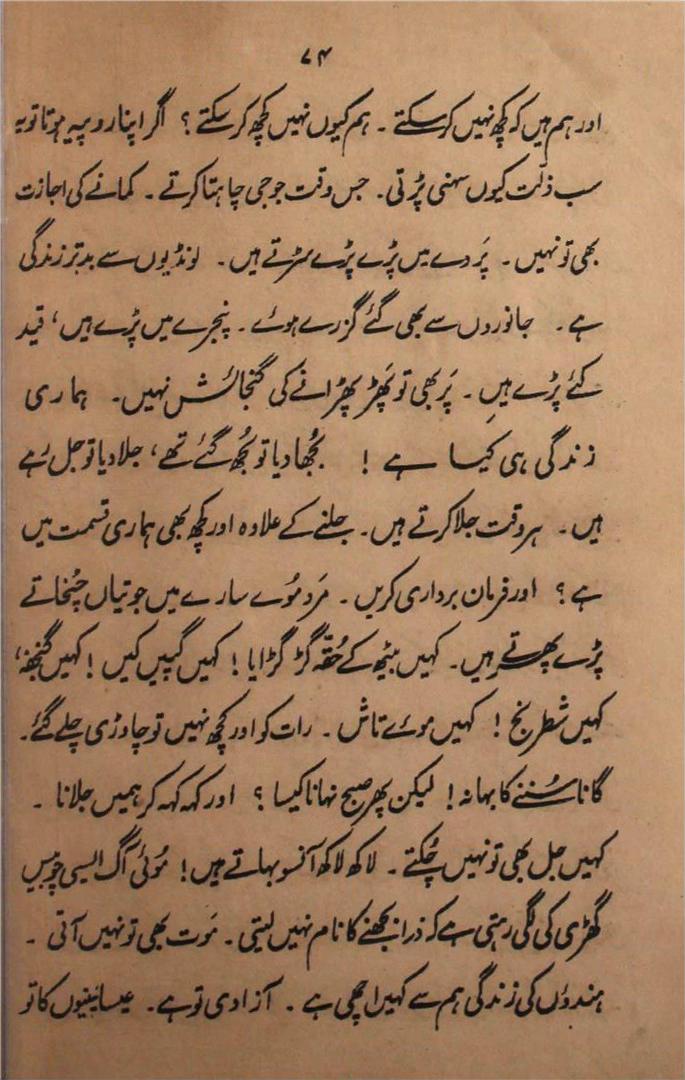 ۷۴
اور ہم ہیں کہ کچھ نہیں کر سکتے ۔ ہم کیوں نہیں کچھ کر سکتے ؟ اگر اپنا روپیہ ہوتا تو یہ
سب ذلّت کیوں سہنی پڑتی ۔ جس وقت جو جی چاہتا کرتے ۔ کمانے کی اجازت
بھی تو نہیں ۔ پَردے میں پڑے پڑے سڑتے ہیں ۔ لونڈیوں سے بدتر زندگی
ہے ۔ جانوروں سے بھی گئے گزرے ہوئے ۔ پنجرے میں پڑے ہیں ، قید
کئے پڑے ہیں ۔ پَر بھی تو پَھڑ پھڑانے کی گنجائش نہیں ۔ ہماری
زندگی ہی کیا ہے ! بُجھا دیا تو بُجھ گئے تھے ، جلا دیا تو جل رہے
ہیں ۔ ہر وقت جلا کرتے ہیں ۔ جلنے کے علاوہ اور کچھ بھی ہماری قسمت میں
ہے ؟ اور فرمان برداری کریں ۔ مَرد مُوے سارے میں جوتیاں چٹخاتے
پڑے پھرتے ہیں ۔ کہیں بیٹھ کے حُقّہ گڑ گڑایا ! کہیں گپیں کیں ! کہیں گنجفہ ،
کہیں شطرنج ! کہیں موئے تاش ۔ رات کو اور کچھ نہیں تو چاوڑی چلے گئے ۔
گانا سُننے کا بہانہ ! لیکن پھر صبح نہانا کیسا ؟ اور کہہ کہہ کر ہمیں جلانا ۔
کہیں جل بھی تو نہیں چُکتے ۔ لاکھ لاکھ آنسو بہاتے ہیں ! مُوئی آگ ایسی چوبیس
گھڑی کی لگی رہتی ہے کہ ذرا بجھنے کا نام نہیں لیتی ۔ مَوت بھی تو نہیں آتی ۔
ہندوؤں کی زندگی ہم سے کہیں اچھی ہے ۔ آزادی تو ہے ۔ عیسائیوں کا تو